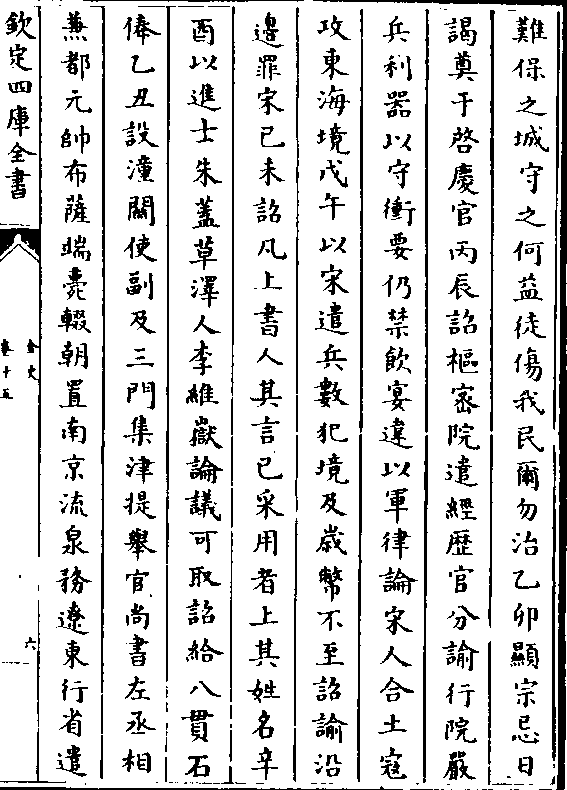 難保之城守之何益徒傷我民爾勿治乙卯顯宗忌日
謁奠于啓慶宫丙辰詔樞宻院遣經歴官分諭行院嚴
兵利器以守衝要仍禁飲宴違以軍律論宋人合土寇
攻東海境戊午以宋遣兵數犯境及歳幣不至詔諭沿
邊罪宋已未詔凡上書人其言已采用者上其姓名辛
酉以進士朱蓋草澤人李維嶽論議可取詔給八貫石
俸乙丑設潼關使副及三門集津提舉官尚書左丞相
兼都元帥布薩端薨輟朝置南京流泉務遼東行省遣
欽定四庫全書
金史
卷十五
六